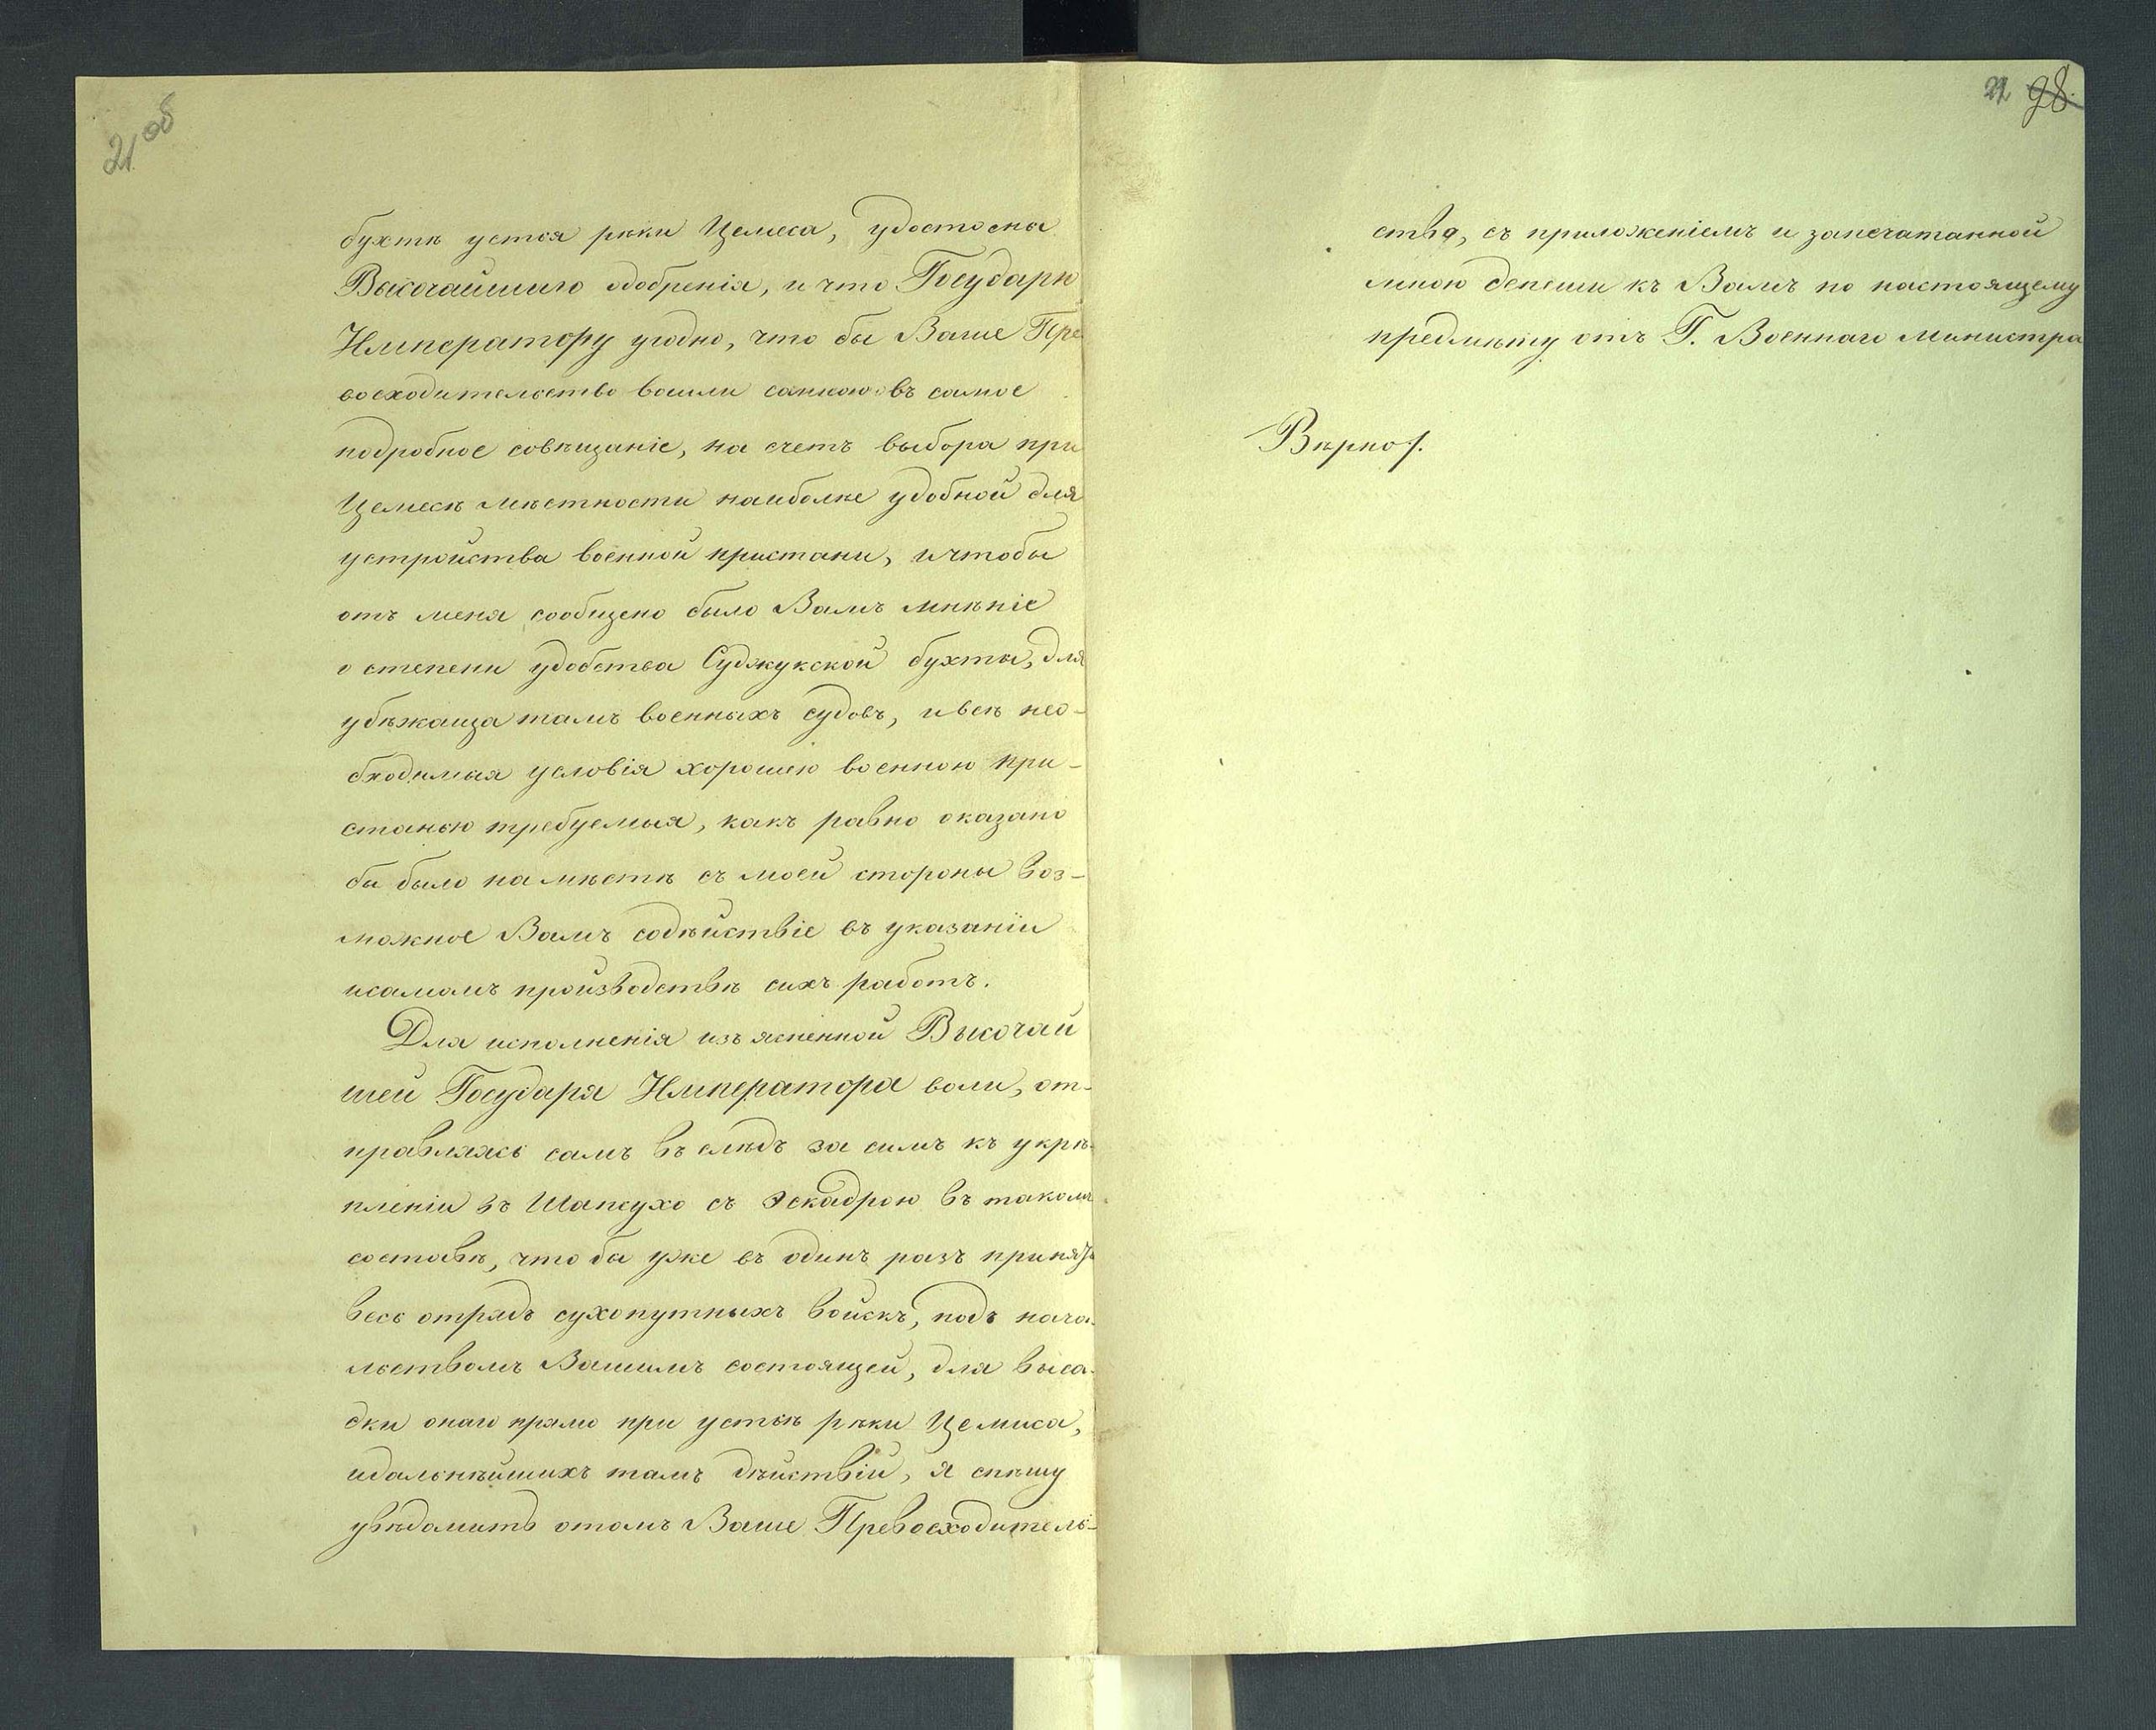 21 об
бухтѣ устья рѣки Цемеса, удостоена
Высочайшаго одобренія, и что Государю
Императору угодно, что бы Ваше Пре
восходительство вошли со мною въ самое
подробное совѣщаніе, на счетъ выбора при
Цемесѣ мѣстности наиболѣе удобной для
устройства военной пристани, и чтобы
отъ меня сообщено было Вамъ мнѣніе
о степени удобства Суджукской бухты, для
убѣжища тамъ военныхъ судовъ, и всѣ нео-
бходимыя условія хорошею военною при-
станью требуемыя, какъ равно оказано
бы было на мѣстѣ съ моей стороны воз-
можное Вамъ содѣйствіе въ указаніи
и самомъ производствѣ сихъ работъ.
Для исполненія изъясненной Высочай
шей Государя Императора воли, от-
правляясь самъ въ слѣдъ за симъ къ укрѣ-
пленію въ Шапсухо съ эскадрою въ такомъ
составѣ, что бы уже въ одинъ разъ принять
весь отрядъ сухопутныхъ войскъ, подъ нача-
льствомъ Вашимъ состоящей, для выса-
дки онаго прямо при устьѣ рѣки Цемиса,
и дальнѣйшихъ тамъ дѣйствій, я спѣшу
увѣдомить о томъ Ваше Превосходитель-
22 98.
ство, съ приложеніемъ и запечатанной
мною депеши къ Вамъ по настоящему
предмѣту отъ Г. Военнаго Министра
Вѣрно: